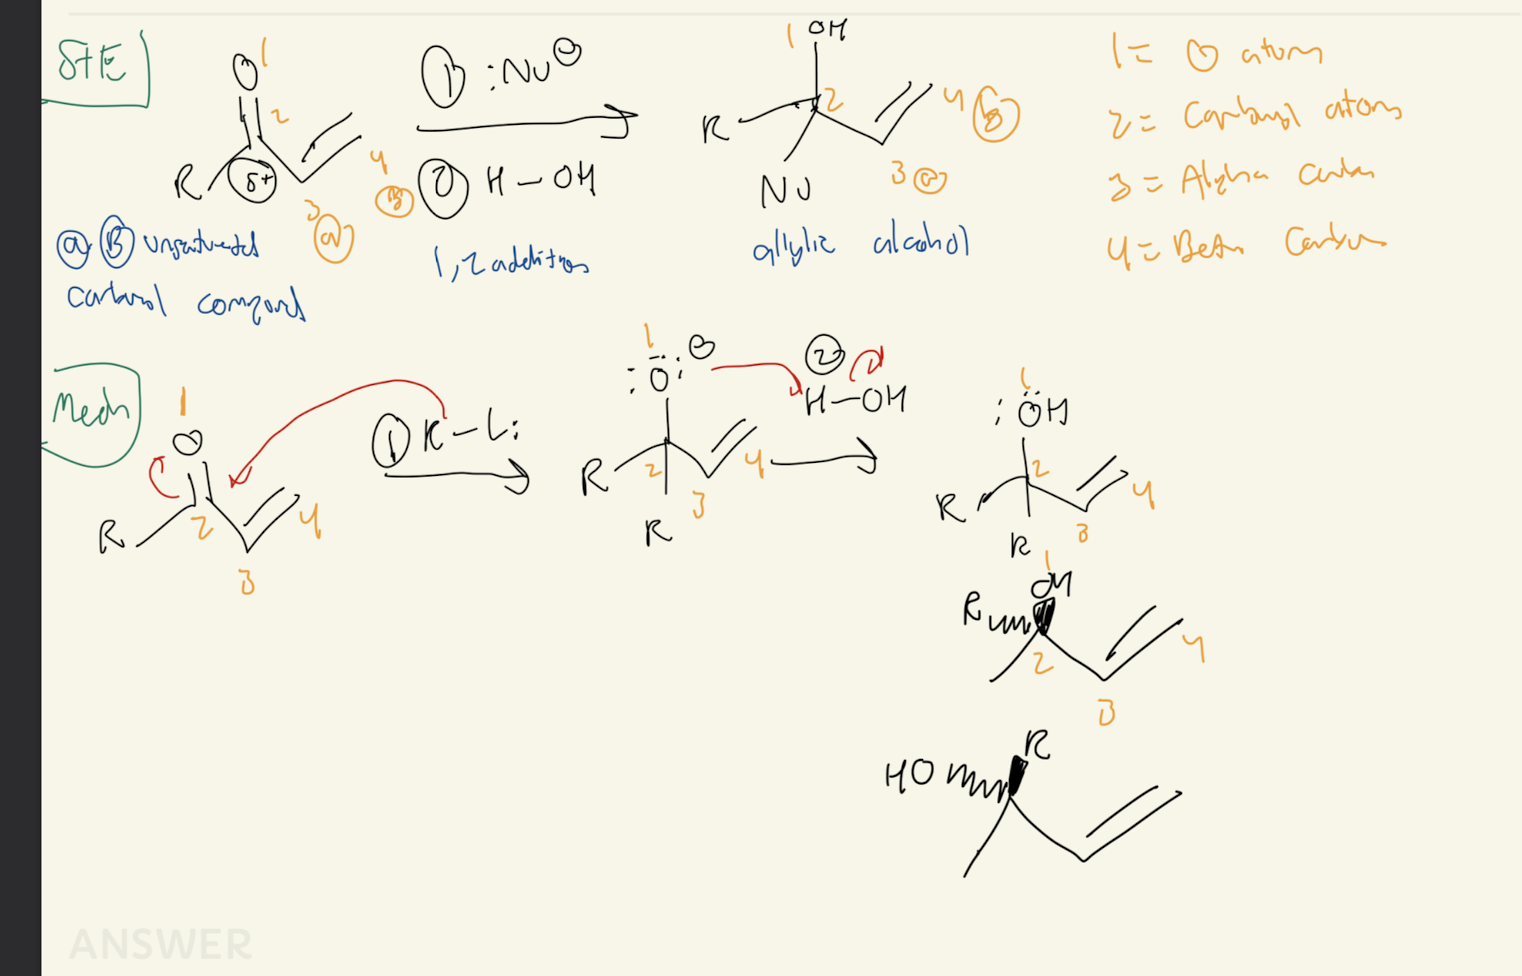 StE
O
1
2
R
δ+
3 α
4 β
① :Nu⊖
② H-OH
1
OH
R
2
Nu
3 α
4 β
1= O atom
2= Carbonyl atoms
3= Alpha Carbon
4= Beta Carbon
α, β unsaturated
carbonyl compound
1,2 addition
allylic alcohol
Mech
1
O
R
2
3
4
① R-Li
1
:O: ⊖
R
2
R
3
4
②
H-OH
1
:OH
R
2
R
3
4
1
OH
R
2
3
4
HO
R
ANSWER